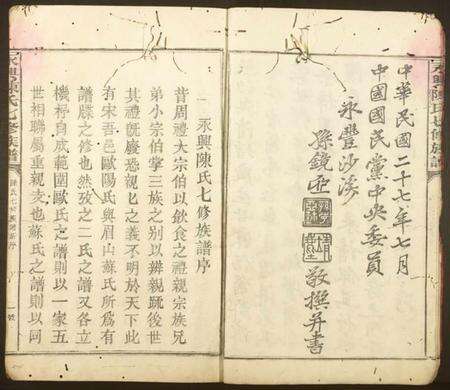 中華民國二十七年七月
中國國民黨中央委員
永豐沙溪
孫鏡亞
敬撰并書
永興陳氏七修族譜
永興陳氏七修族譜序
昔周禮大宗伯以飲食之禮親宗族兄
弟小宗伯掌三族之別以辨親疏後世
其禮旣廢恐親親之義不明於天下此
有宋吾邑歐陽氏與眉山蘇氏所爲有
譜牒之修也然攷之二氏之譜又各立
機杼自成範圍歐氏之譜則以一家五
世相聯屬重親支也蘇氏之譜則以同
永興陳氏七修族譜